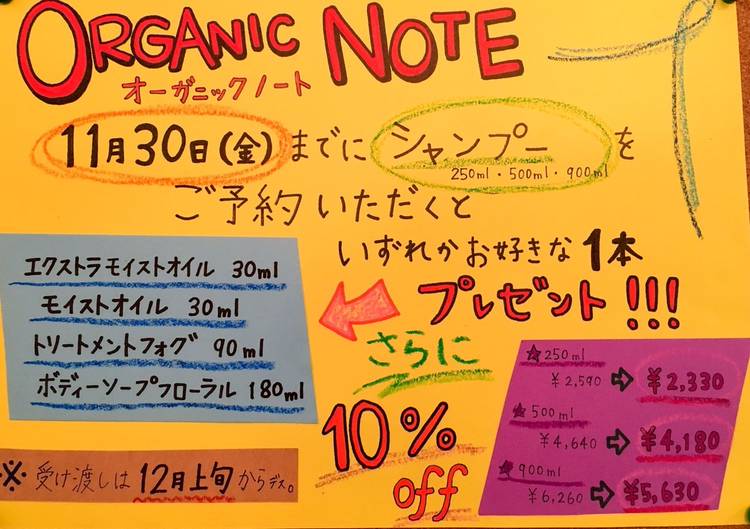 ORGANIC NOTE
オーガニックノート
11月30日(金)までにシャンプーを
250ml・500ml・900ml
ご予約いただくと
いずれかお好きな1本
プレゼント!!!
エクストラモイストオイル 30ml
モイストオイル 30ml
トリートメントフォグ 90ml
ボディーソープフローラル 180ml
さらに
10%
off
★250ml
¥2,590⇨¥2,330
★500ml
¥4,640⇨¥4,180
★900ml
¥6,260⇨¥5,630
※受け渡しは12月上旬からデス。